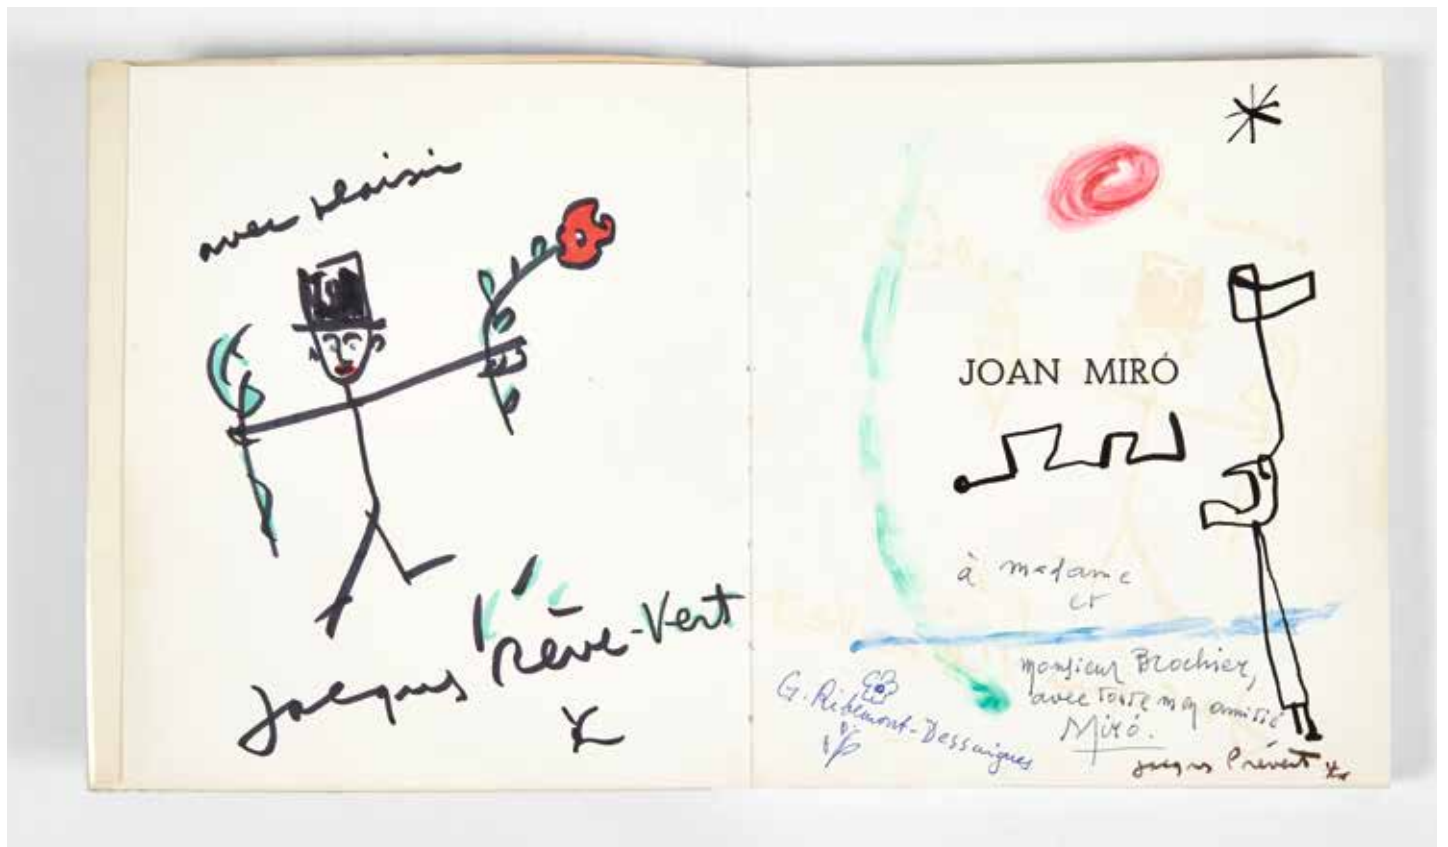 avec plaisir
Jacques Rêve-Vert
JOAN MIRÓ
à madame
et
monsieur Brochier,
avec toute mon amitié
Miró.
G. Ribemont-Dessaignes
Jacques Prévert